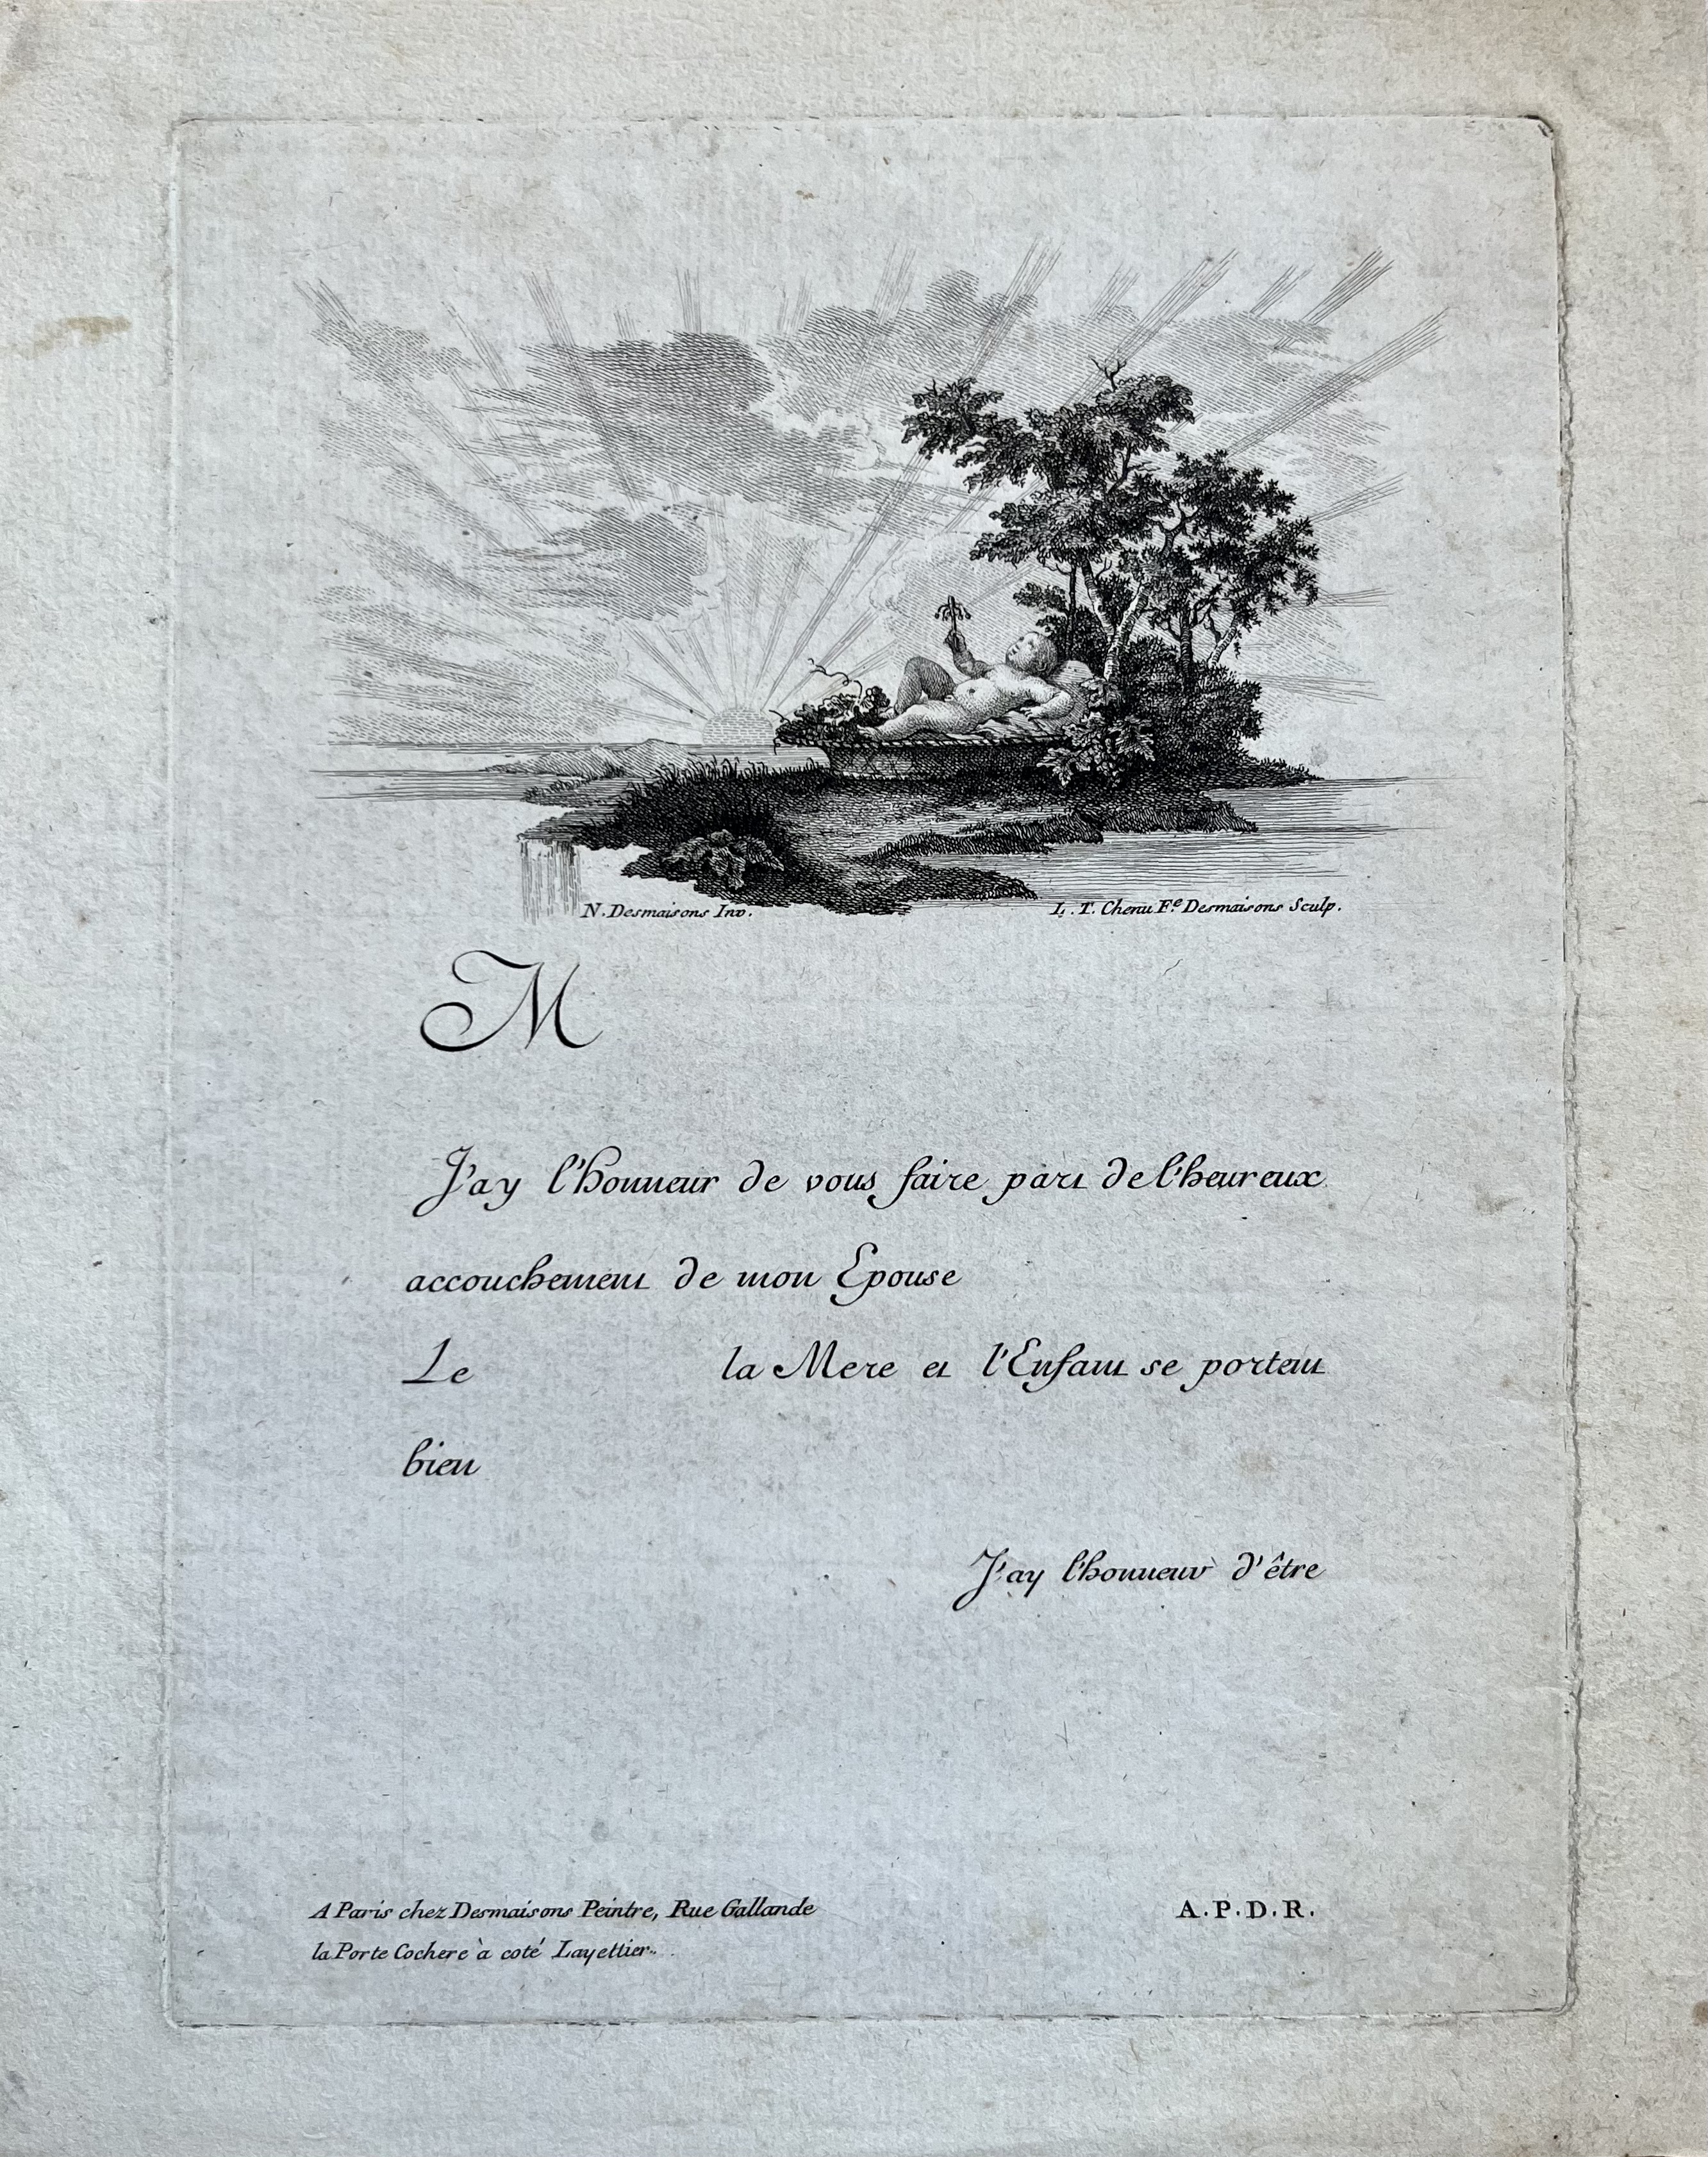 N. Desmaisons Inv.
L. T. Chenu Fe. Desmaisons Sculp.
M
J'ay l'honneur de vous faire part de l'heureux
accouchement de mon Epouse
Le la Mere et l'Enfant se portent
bien
J'ay l'honneur d'être
A Paris chez Desmaisons Peintre, Rue Gallande
A.P.D.R.
la Porte Cochere à coté Layettier.